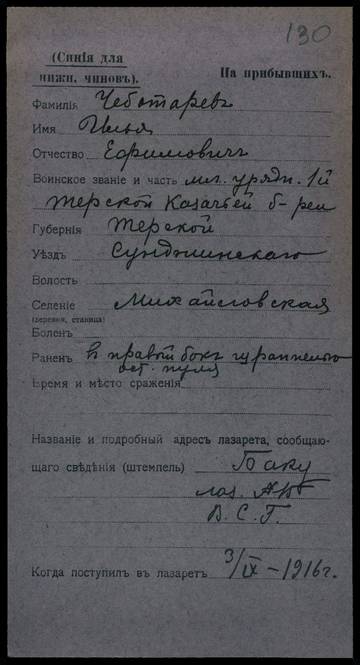 130
(Синія для
нижн. чиновъ).
На прибывшихъ.
Фамилія Чеботаревъ
Имя Илья
Отчество Ефимовичъ
Воинское званіе и часть мл. урядн. 1й
Терской Казачьей б-реи
Губернія Терской
Уѣздъ Сунджинскаго
Волость
Селеніе Михайловская
(деревня, станица)
Боленъ
Раненъ въ правый бокъ шрапнелью
ост. пуля
Время и мѣсто сраженія
Названіе и подробный адресъ лазарета, сообщаю-
щаго свѣдѣнія (штемпель) Баку
лаз.
В. С. Г.
Когда поступилъ въ лазаретъ 3/IX – 1916г.